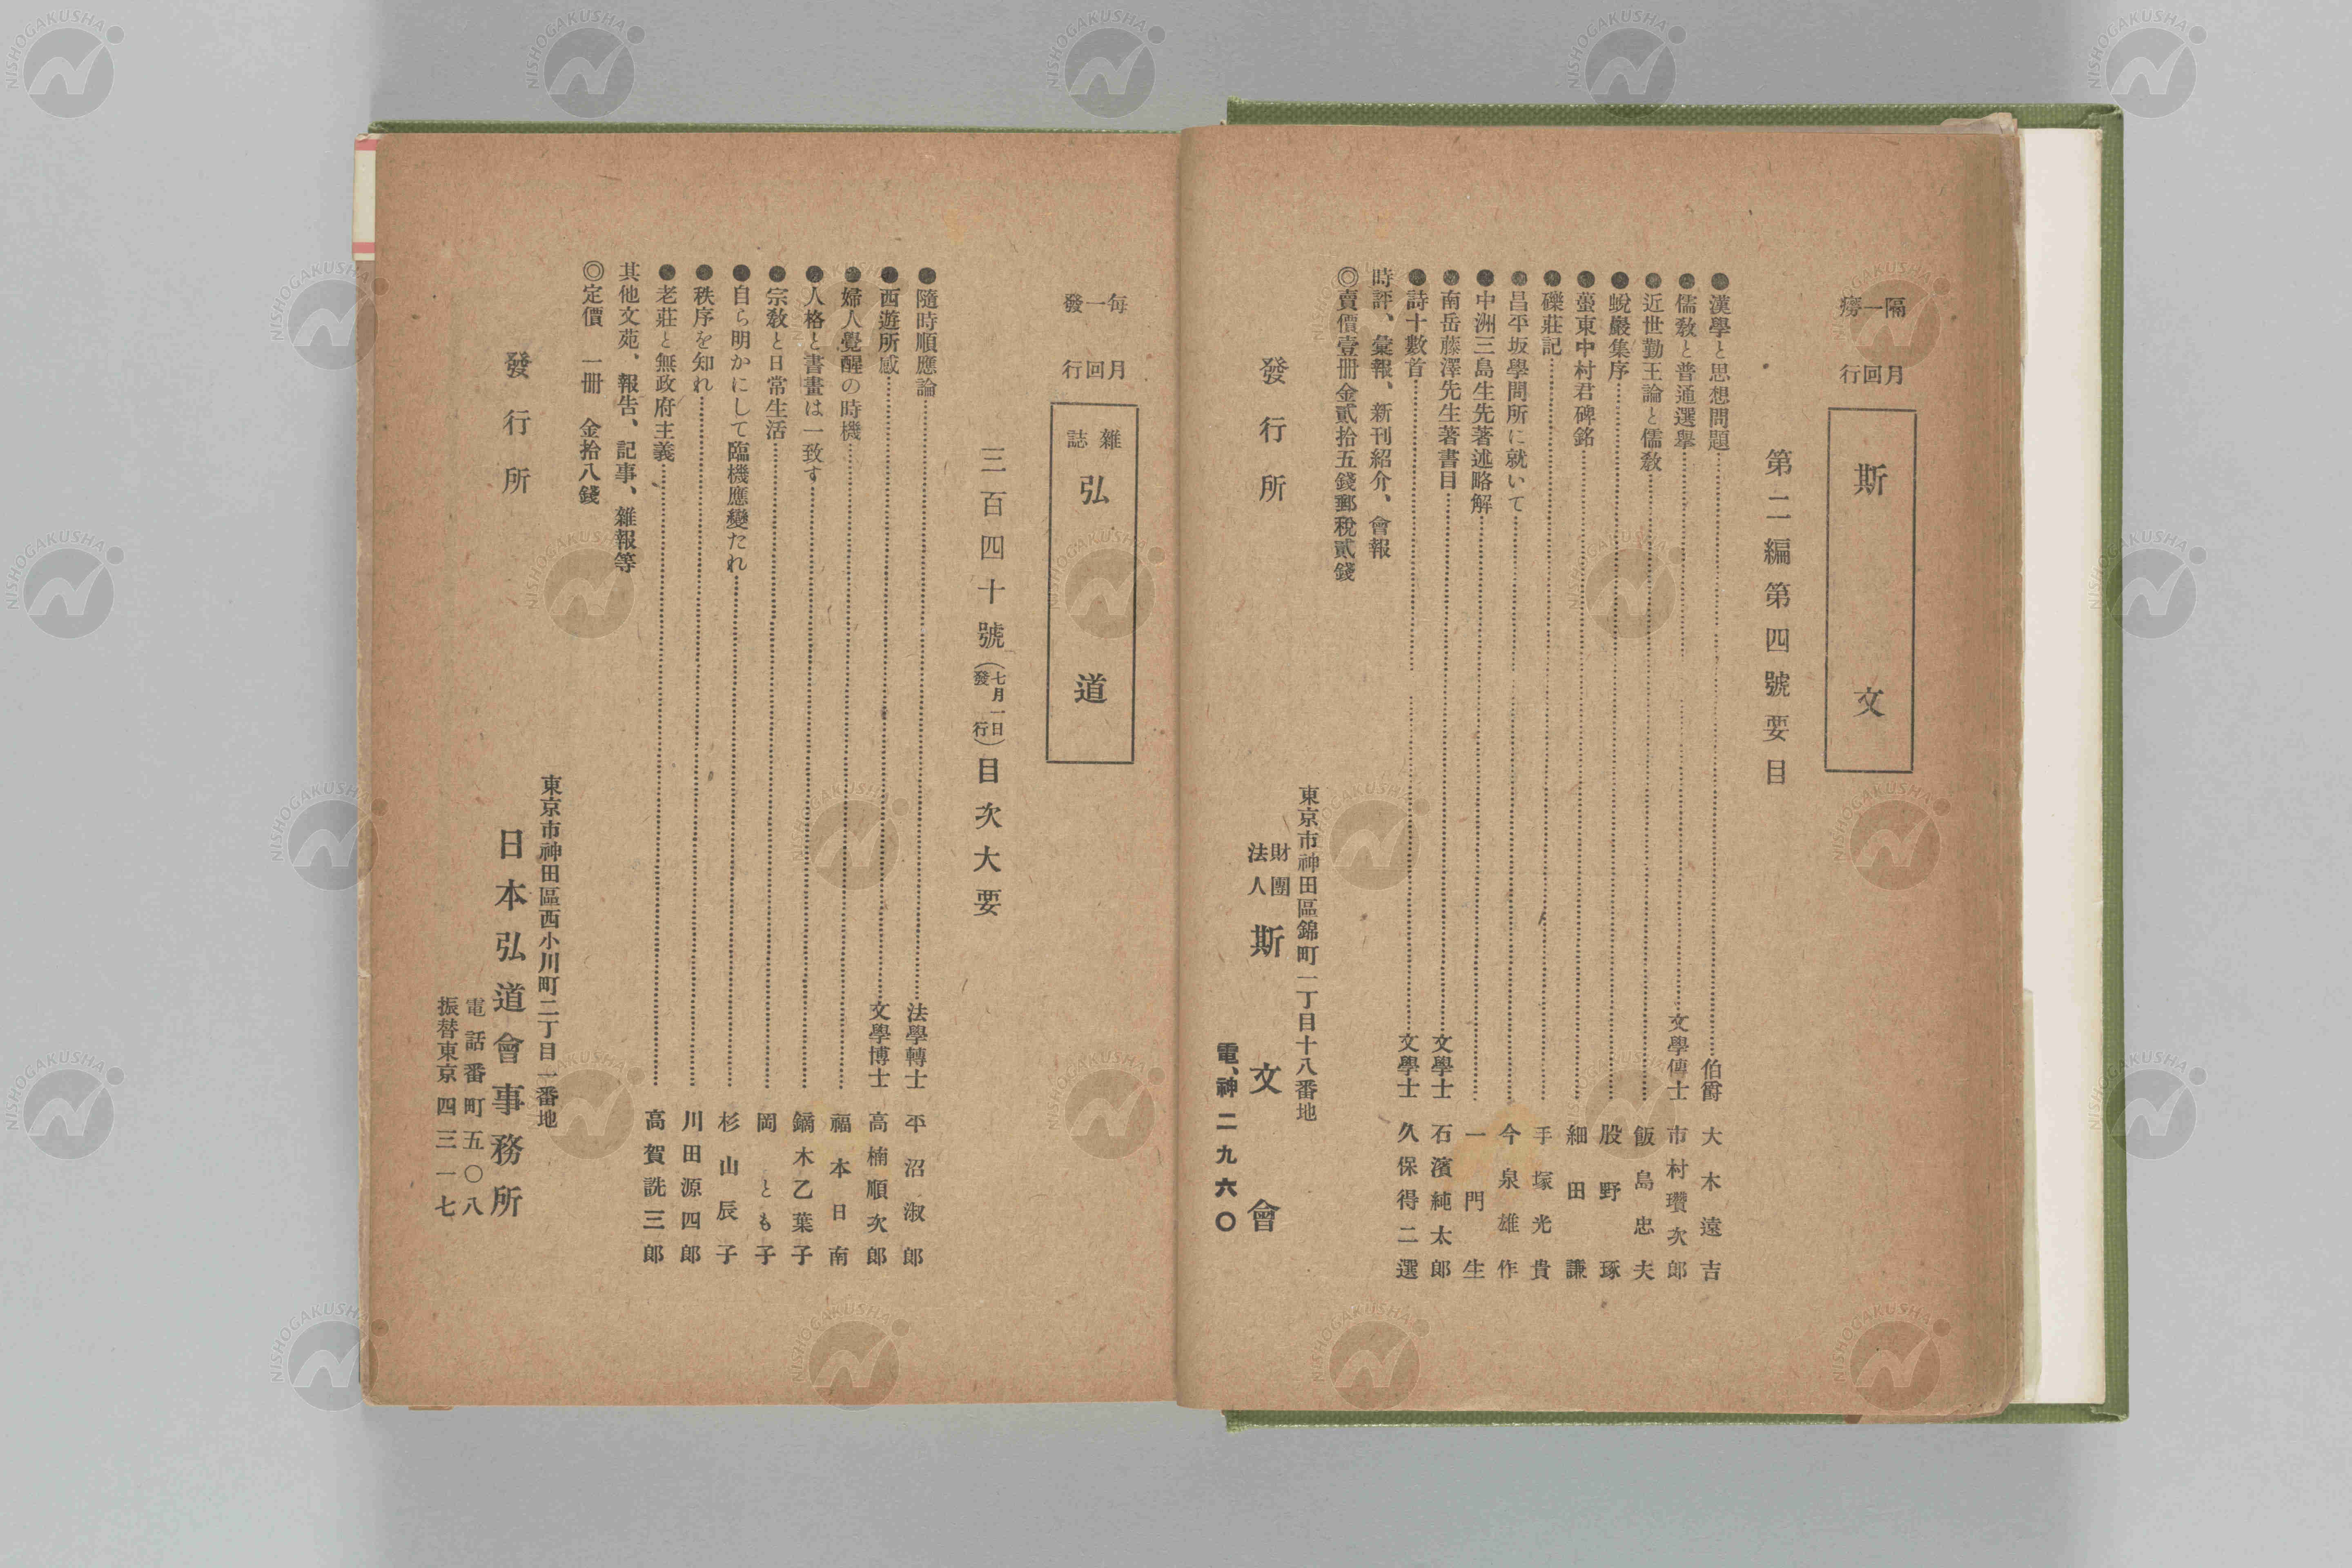 隔月
一回
癆行
斯文
第二編第四號要目
●漢學と思想問題 伯爵 大木遠吉
●儒敎と普通選擧 文學傅士 市村瓚次郎
●近世勤王論と儒敎 飯島忠夫
●蛻巖集序 股野琢
●螢東中村君碑銘 細田謙
●礫莊記 手塚光貴
●昌平坂學問所に就いて 今泉雄作
●中洲三島生先著述略解 一門生
●南岳藤澤先生著書目 文學士 石濱純太郎
●詩十數首 文學士 久保得二選
時評、彙報、新刊紹介、會報
◎賣價壹册金貳拾五錢郵稅貳錢
東京市神田區錦町一丁目十八番地
發行所 財團法人 斯文會
電、神二九六〇
每月
一回
發行
雜誌 弘道
三百四十號(七月一日發行)目次大要
●隨時順應論 法學轉士 平沼淑郎
●西遊所感 文學博士 高楠順次郎
●婦人覺醒の時機 福本日南
●人格と書畫は一致す 鏑木乙葉子
●宗敎と日常生活 岡とも子
●自ら明かにして臨機應變たれ 杉山辰子
●秩序を知れ 川田源四郎
●老莊と無政府主義 高賀詵三郎
其他文苑、報告、記事、雜報等
◎定價 一册 金拾八錢
東京市神田區西小川町二丁目一番地
發行所 日本弘道會事務所
電話番町五〇八
振替東京四三一七
NISHOGAKUSHA